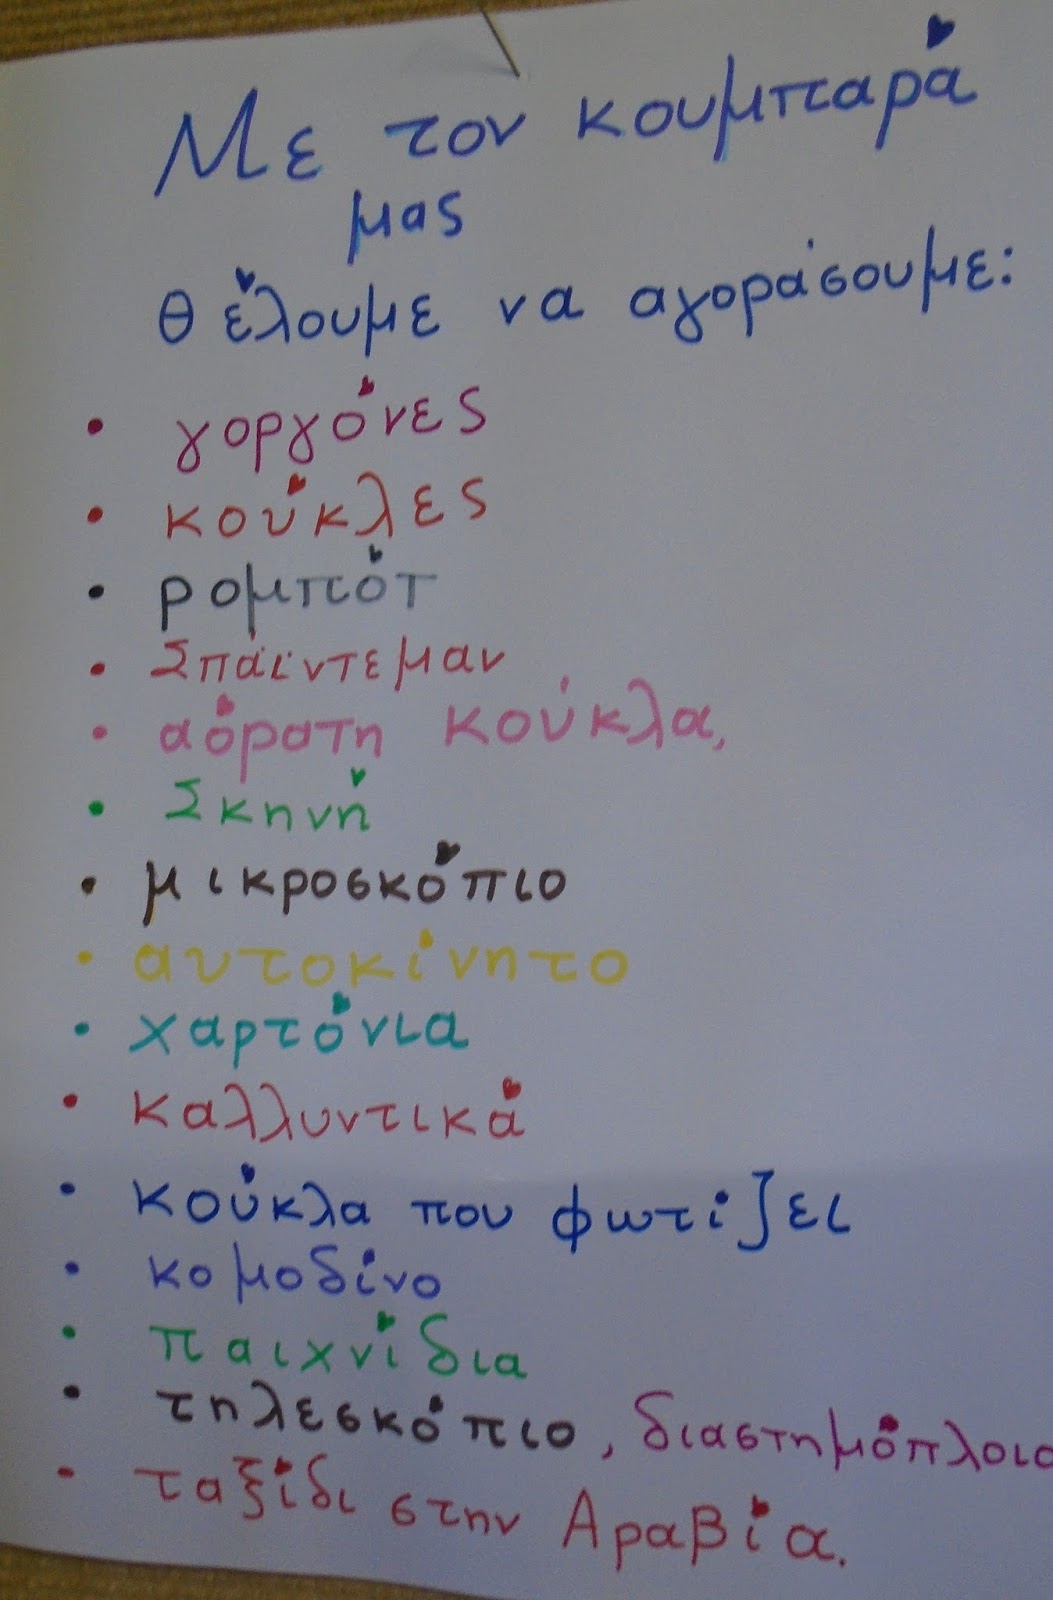 Με τον κουμπαρά
μας
θέλουμε να αγοράσουμε:
• γοργόνες
• κούκλες
• ρομπότ
• Σπάιντεμαν
• αόρατη κούκλα,
• Σκηνή
• μικροσκόπιο
• αυτοκίνητο
• χαρτόνια
• καλλυντικά
• κούκλα που φωτίζει
• κομοδίνο
• παιχνίδια
• τηλεσκόπιο, διαστημόπλοιο
• ταξίδι στην Αραβία.